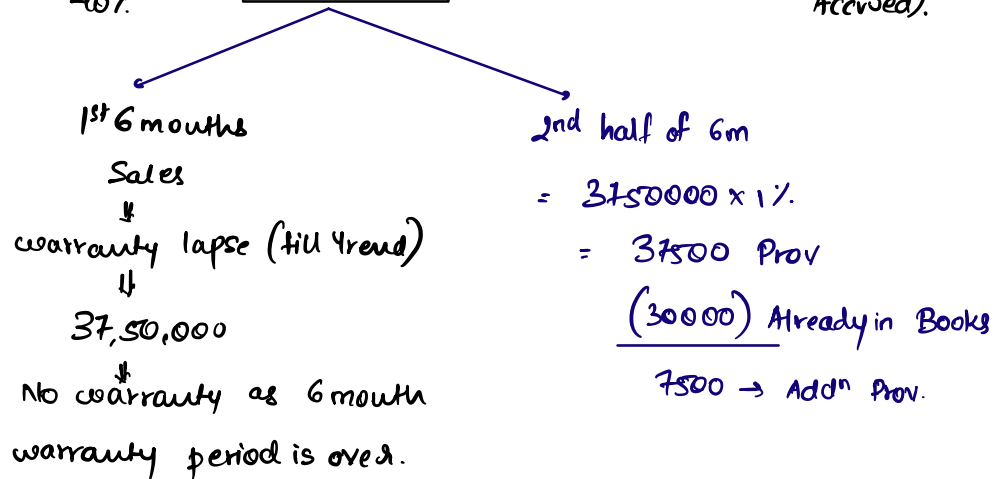 Accrued).
1st 6 mouths
Sales
warranty lapse (till Yrend)
37,50,000
No warranty as 6 mouth
warranty period is over.
2nd half of 6m
= 3750000 x 1%.
= 37500 Prov
(30000) Already in Books
7500 → Addn Prov.